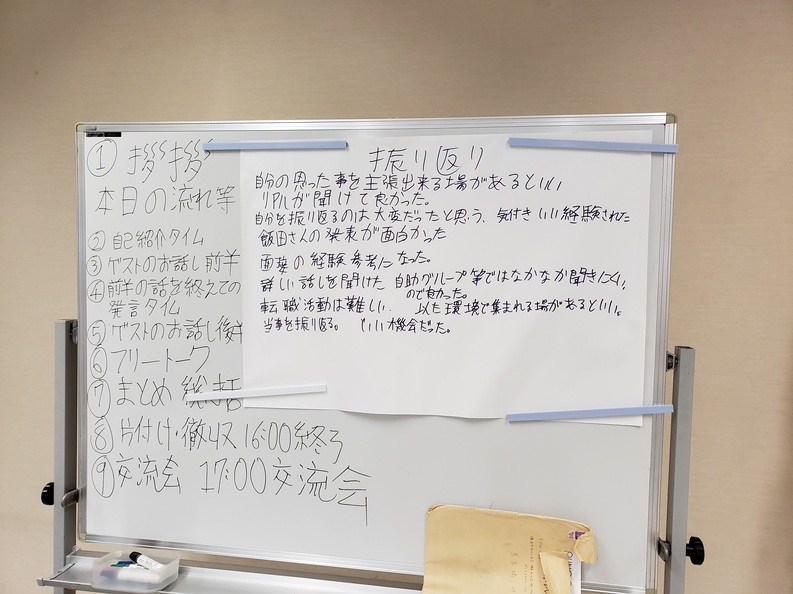 ① 挨拶
本日の流れ等
② 自己紹介タイム
③ ゲストのお話し前半
④ 前半の話を終えての
発言タイム
⑤ ゲストのお話し後半
⑥ フリートーク
⑦ まとめ 総括
⑧ 片付け・撤収 16:00終了
⑨ 交流会 17:00交流会
振り返り
自分の思った事を主張出来る場があるといい
リアルが聞けて良かった。
自分を振り返るのは大変だったと思う、気付き いい経験された
飯田さんの発表が面白かった
面接の経験参考になった。
詳しい話しを聞けた 自助グループ等ではなかなか聞きにくい
ので良かった。
転職活動は難しい. 以た環境で集まれる場があるといい。
当事を振り返る。 いい機会だった。